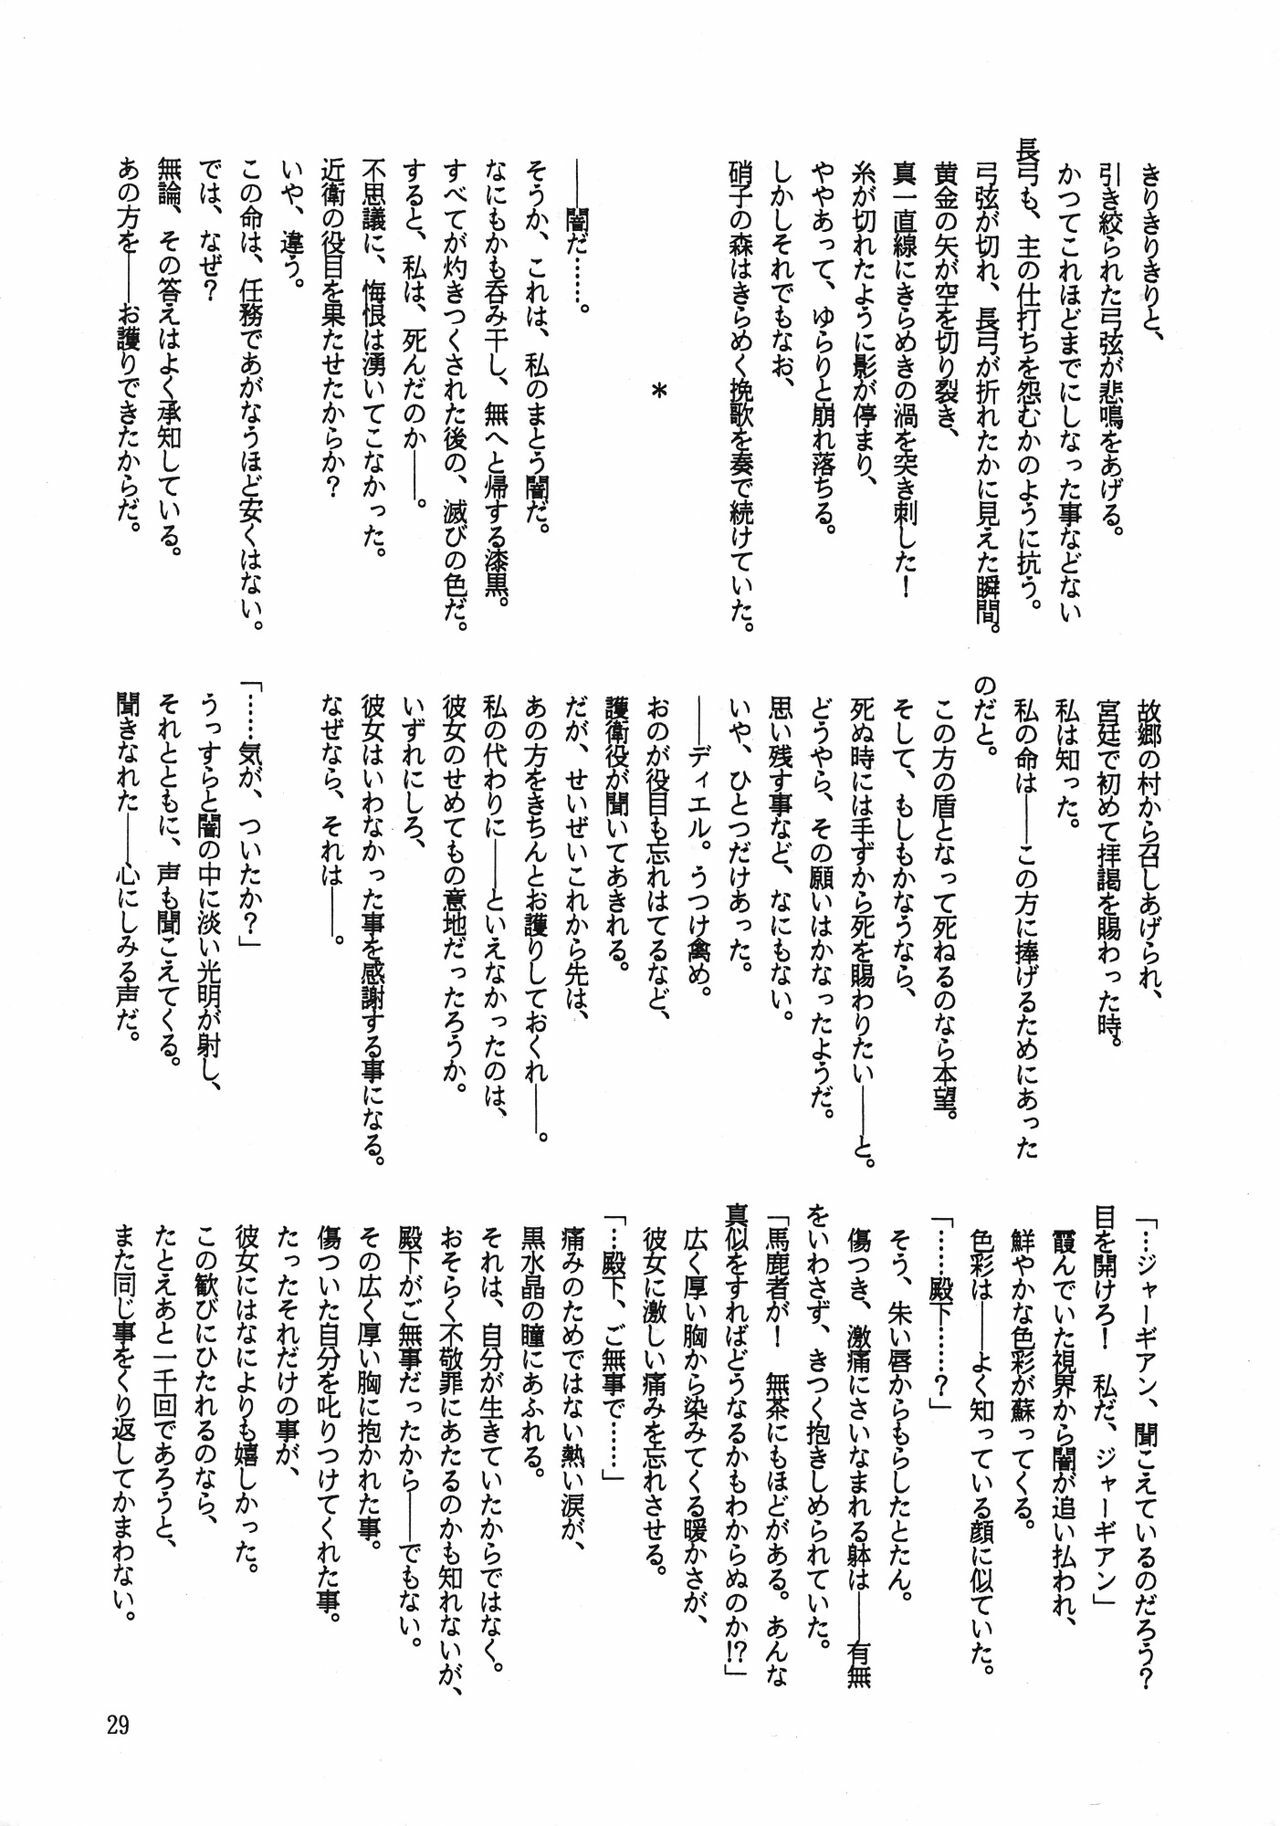 きりきりきりと、
引き絞られた弓弦が悲鳴をあげる。
かつてこれほどまでにしなった事などない
長弓も、主の仕打ちを怨むかのように抗う。
弓弦が切れ、長弓が折れたかに見えた瞬間。
黄金の矢が空を切り裂き、
真一直線にきらめきの渦を突き刺した！
糸が切れたように影が停まり、
ややあって、ゆらりと崩れ落ちる。
しかしそれでもなお、
硝子の森はきらめく挽歌を奏で続けていた。
＊
――闇だ……。
そうか、これは、私のまとう闇だ。
なにもかも呑み干し、無へと帰する漆黒。
すべてが灼きつくされた後の、滅びの色だ。
すると、私は、死んだのか――。
不思議に、悔恨は湧いてこなかった。
近衛の役目を果たせたからか？
いや、違う。
この命は、任務であがなうほど安くはない。
では、なぜ？
無論、その答えはよく承知している。
あの方を――お護りできたからだ。
故郷の村から召しあげられ、
宮廷で初めて拝謁を賜わった時。
私は知った。
私の命は――この方に捧げるためにあった
のだと。
この方の盾となって死ねるのなら本望。
そして、もしもかなうなら、
死ぬ時には手ずから死を賜わりたい――と。
どうやら、その願いはかなったようだ。
思い残す事など、なにもない。
いや、ひとつだけあった。
――ディエル。うつけ禽め。
おのが役目も忘れはてるなど、
護衛役が聞いてあきれる。
だが、せいぜいこれから先は、
あの方をきちんとお護りしておくれ――。
私の代わりに――といえなかったのは、
彼女のせめてもの意地だったろうか。
いずれにしろ、
彼女はいわなかった事を感謝する事になる。
なぜなら、それは――。
「……気が、ついたか？」
うっすらと闇の中に淡い光明が射し、
それとともに、声も聞こえてくる。
聞きなれた――心にしみる声だ。
「…ジャーギアン、聞こえているのだろう？
目を開けろ！　私だ、ジャーギアン」
霞んでいた視界から闇が追い払われ、
鮮やかな色彩が蘇ってくる。
色彩は――よく知っている顔に似ていた。
「……殿下………？」
そう、朱い唇からもらしたとたん。
傷つき、激痛にさいなまれる躰は――有無
をいわさず、きつく抱きしめられていた。
「馬鹿者が！　無茶にもほどがある。あんな
真似をすればどうなるかもわからぬのか!?」
広く厚い胸から染みてくる暖かさが、
彼女に激しい痛みを忘れさせる。
「…殿下、ご無事で……」
痛みのためではない熱い涙が、
黒水晶の瞳にあふれる。
それは、自分が生きていたからではなく。
おそらく不敬罪にあたるのかも知れないが、
殿下がご無事だったから――でもない。
その広く厚い胸に抱かれた事。
傷ついた自分を叱りつけてくれた事。
たったそれだけの事が、
彼女にはなによりも嬉しかった。
この歓びにひたれるのなら、
たとえあと一千回であろうと、
また同じ事をくり返してかまわない。
29